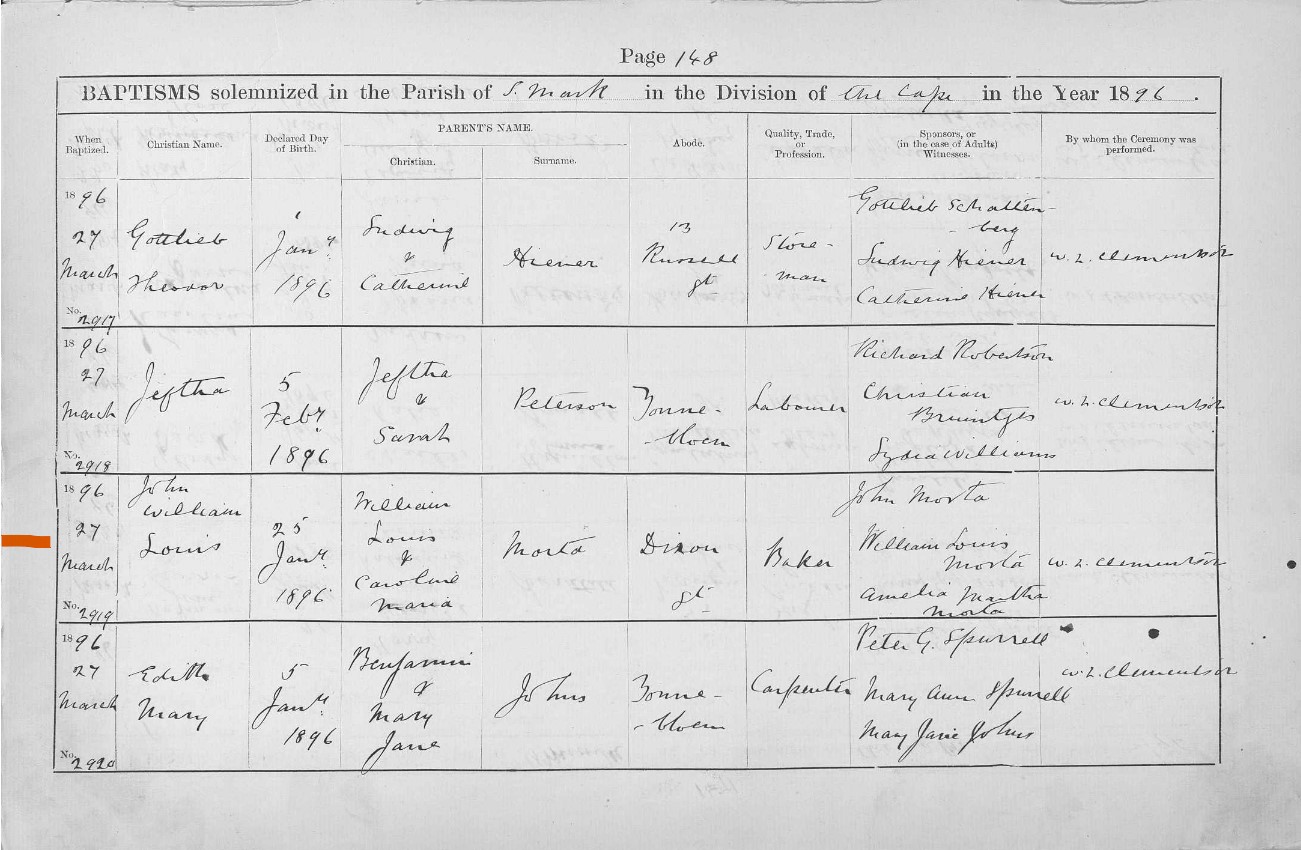 Page 148
BAPTISMS solemnized in the Parish of S. Mark in the Division of the Cape in the Year 1896.
When Baptized. Christian Name. Declared Day of Birth. PARENT'S NAME. Christian. Surname. Abode. Quality, Trade, or Profession. Sponsors, or (in the case of Adults) Witnesses. By whom the Ceremony was performed.
1896
27
March
No. 2917
Gottlieb
Theodor
1
Jany.
1896
Ludwig
&
Catherine
Hiener
13
Russell
St
Store-
man
Gottlieb Schatten-
- berg
Ludwig Hiener
Catherine Hiener
W. L. Clementson
1896
27
March
No. 2918
Jeftha
5
Feby.
1896
Jeftha
&
Sarah
Peterson
Zonne-
- bloem
Labourer
Richard Robertson
Christian
Bruintjes
Lydia Williams
W. L. Clementson
1896
27
March
No. 2919
John
William
Louis
25
Jany.
1896
William
Louis
&
Caroline
Maria
Morta
Dixon
St
Baker
John Morta
William Louis
Morta
Amelia Martha
Morta
W. L. Clementson
1896
27
March
No. 2920
Edith
Mary
5
Jany.
1896
Benjamin
&
Mary
Jane
Johns
Zonne-
- bloem
Carpenter
Peter G. Spurrell
Mary Ann Spurrell
Mary Jane Johns
W. L. Clementson